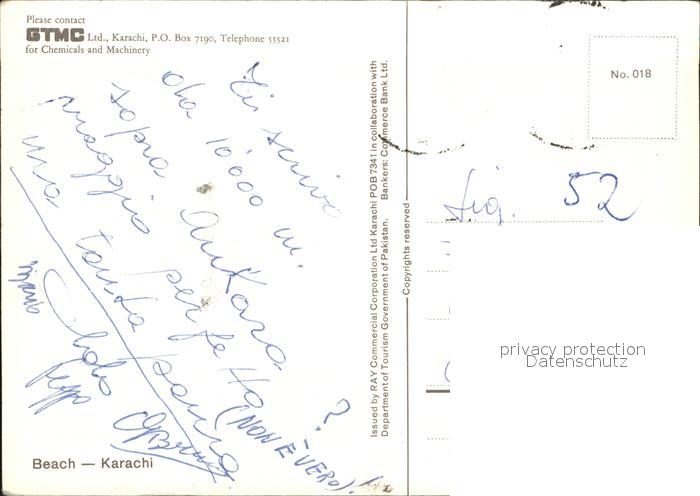 Please contact
GTMC Ltd., Karachi, P.O. Box 7190, Telephone 55521
for Chemicals and Machinery
Ti scrivo
da 10000 m.
sopra Ankara
viaggio per la
ma tanta paura ?
(NON È VERO)!
Ciao
Beach — Karachi
Issued by RAY Commercial Corporation Ltd Karachi POB 7341 in collaboration with
Department of Tourism Government of Pakistan. Bankers: Commerce Bank Ltd.
Copyrights reserved
No. 018
Sig. 52
privacy protection
Datenschutz